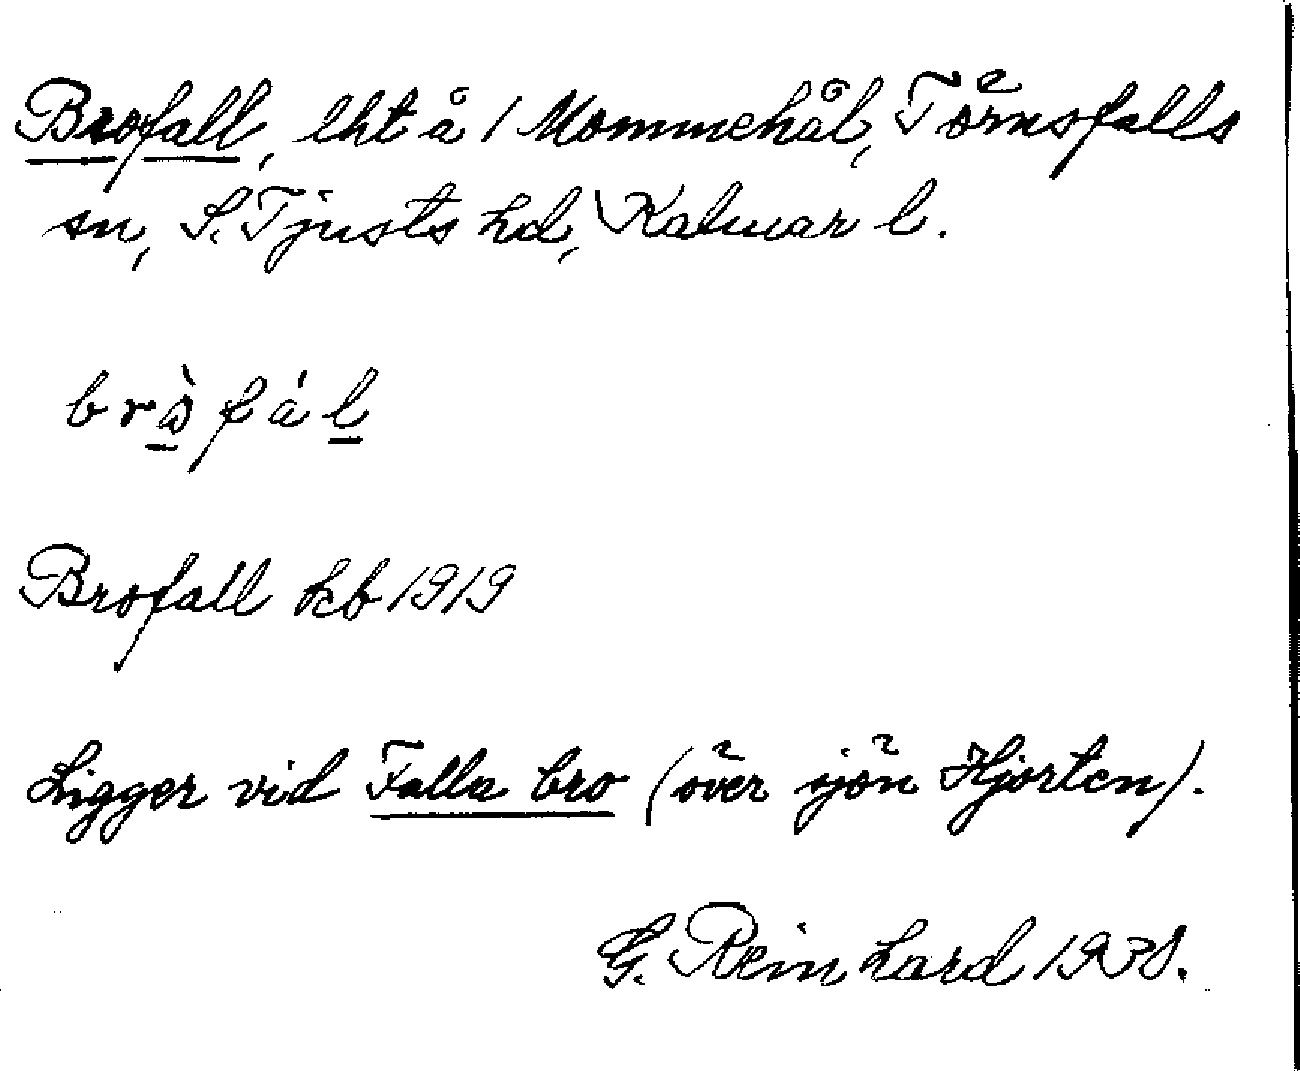 Brofall, lht å 1 Mommehål, Törnsfalls
sn, S. Tjusts hd, Kalmar l.
bròfál
Brofall kb 1919
Ligger vid Falla bro (över sjön Hjorten).
G. Reinhard 1938.